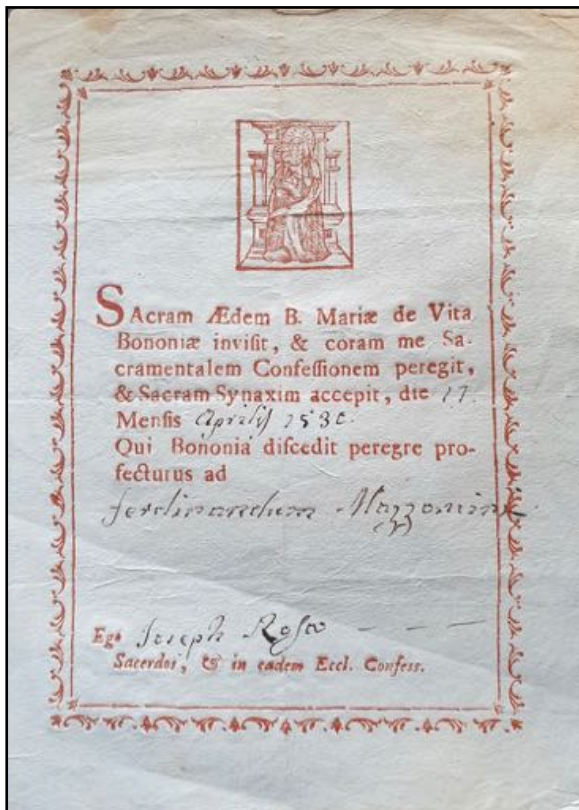 SAcram Ædem B. Mariæ de Vita
Bononiæ invisit, & coram me Sa-
cramentalem Confessionem peregit,
& Sacram Synaxim accepit, die 17.
Mensis Aprilis
Qui Bononiâ discedit peregre pro-
fecturus ad
ferdinandum
Ego Joseph
Sacerdos, & in eadem Eccl. Confess.